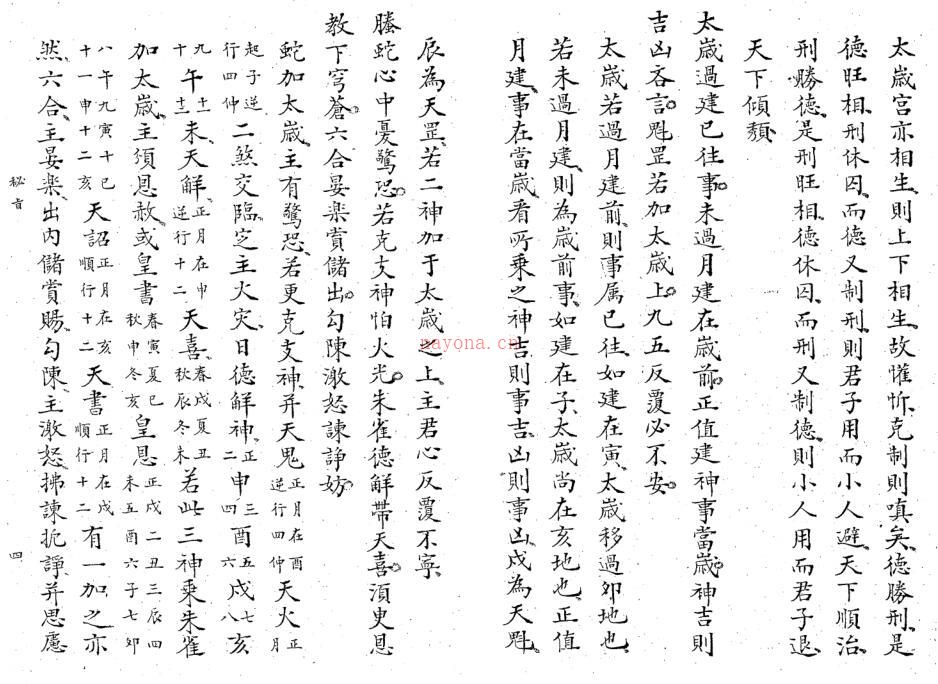 太歲宮亦相生則上下相生故懽忻克制則嗔矣德勝刑是
德旺相刑休囚而德又制刑則君子用而小人避天下順治
刑勝德是刑旺相德休囚而刑又制德則小人用而君子退
天下傾頹
太歲過建已往事未過月建在歲前正值建神事當歲神吉則
吉凶吝言魁罡若加太歲上九五反覆必不安
太歲若過月建前則事属已往如建在寅太歲移過卯地也
若未過月建則為歲前事如建在子太歲尚在亥地也正值
月建事在當歲看所乘之神吉則事吉凶則事凶戌為天魁
辰為天罡若二神加于太歲之上主君心反覆不寧
螣蛇心中憂驚恐若克支神怕火光朱雀德解帶天喜須更恩
教下穹蒼六合晏楽賞儲出勾陳激怒諫諍妨
蛇加太歲主有驚恐若更克支神并天鬼正月在酉逆行四仲天火正月
起子逆行四仲二煞交臨定主火灾日德解神正二申三四酉五六戌七八亥
九十午十一十二未天解正月在申逆行十二天喜春戌夏丑秋辰冬未若此三神乘朱雀
加太歲主須恩赦或皇書春寅夏巳秋申冬亥皇恩正戌二丑三辰四未五酉六子七卯
八午九寅十巳十一申十二亥天詔正月在亥順行十二天書正月在戌順行十二有一加之亦
然六合主晏楽出内儲賞賜勾陳主激怒拂諫扼諍并思慮
秘旨
四
nayona.cn